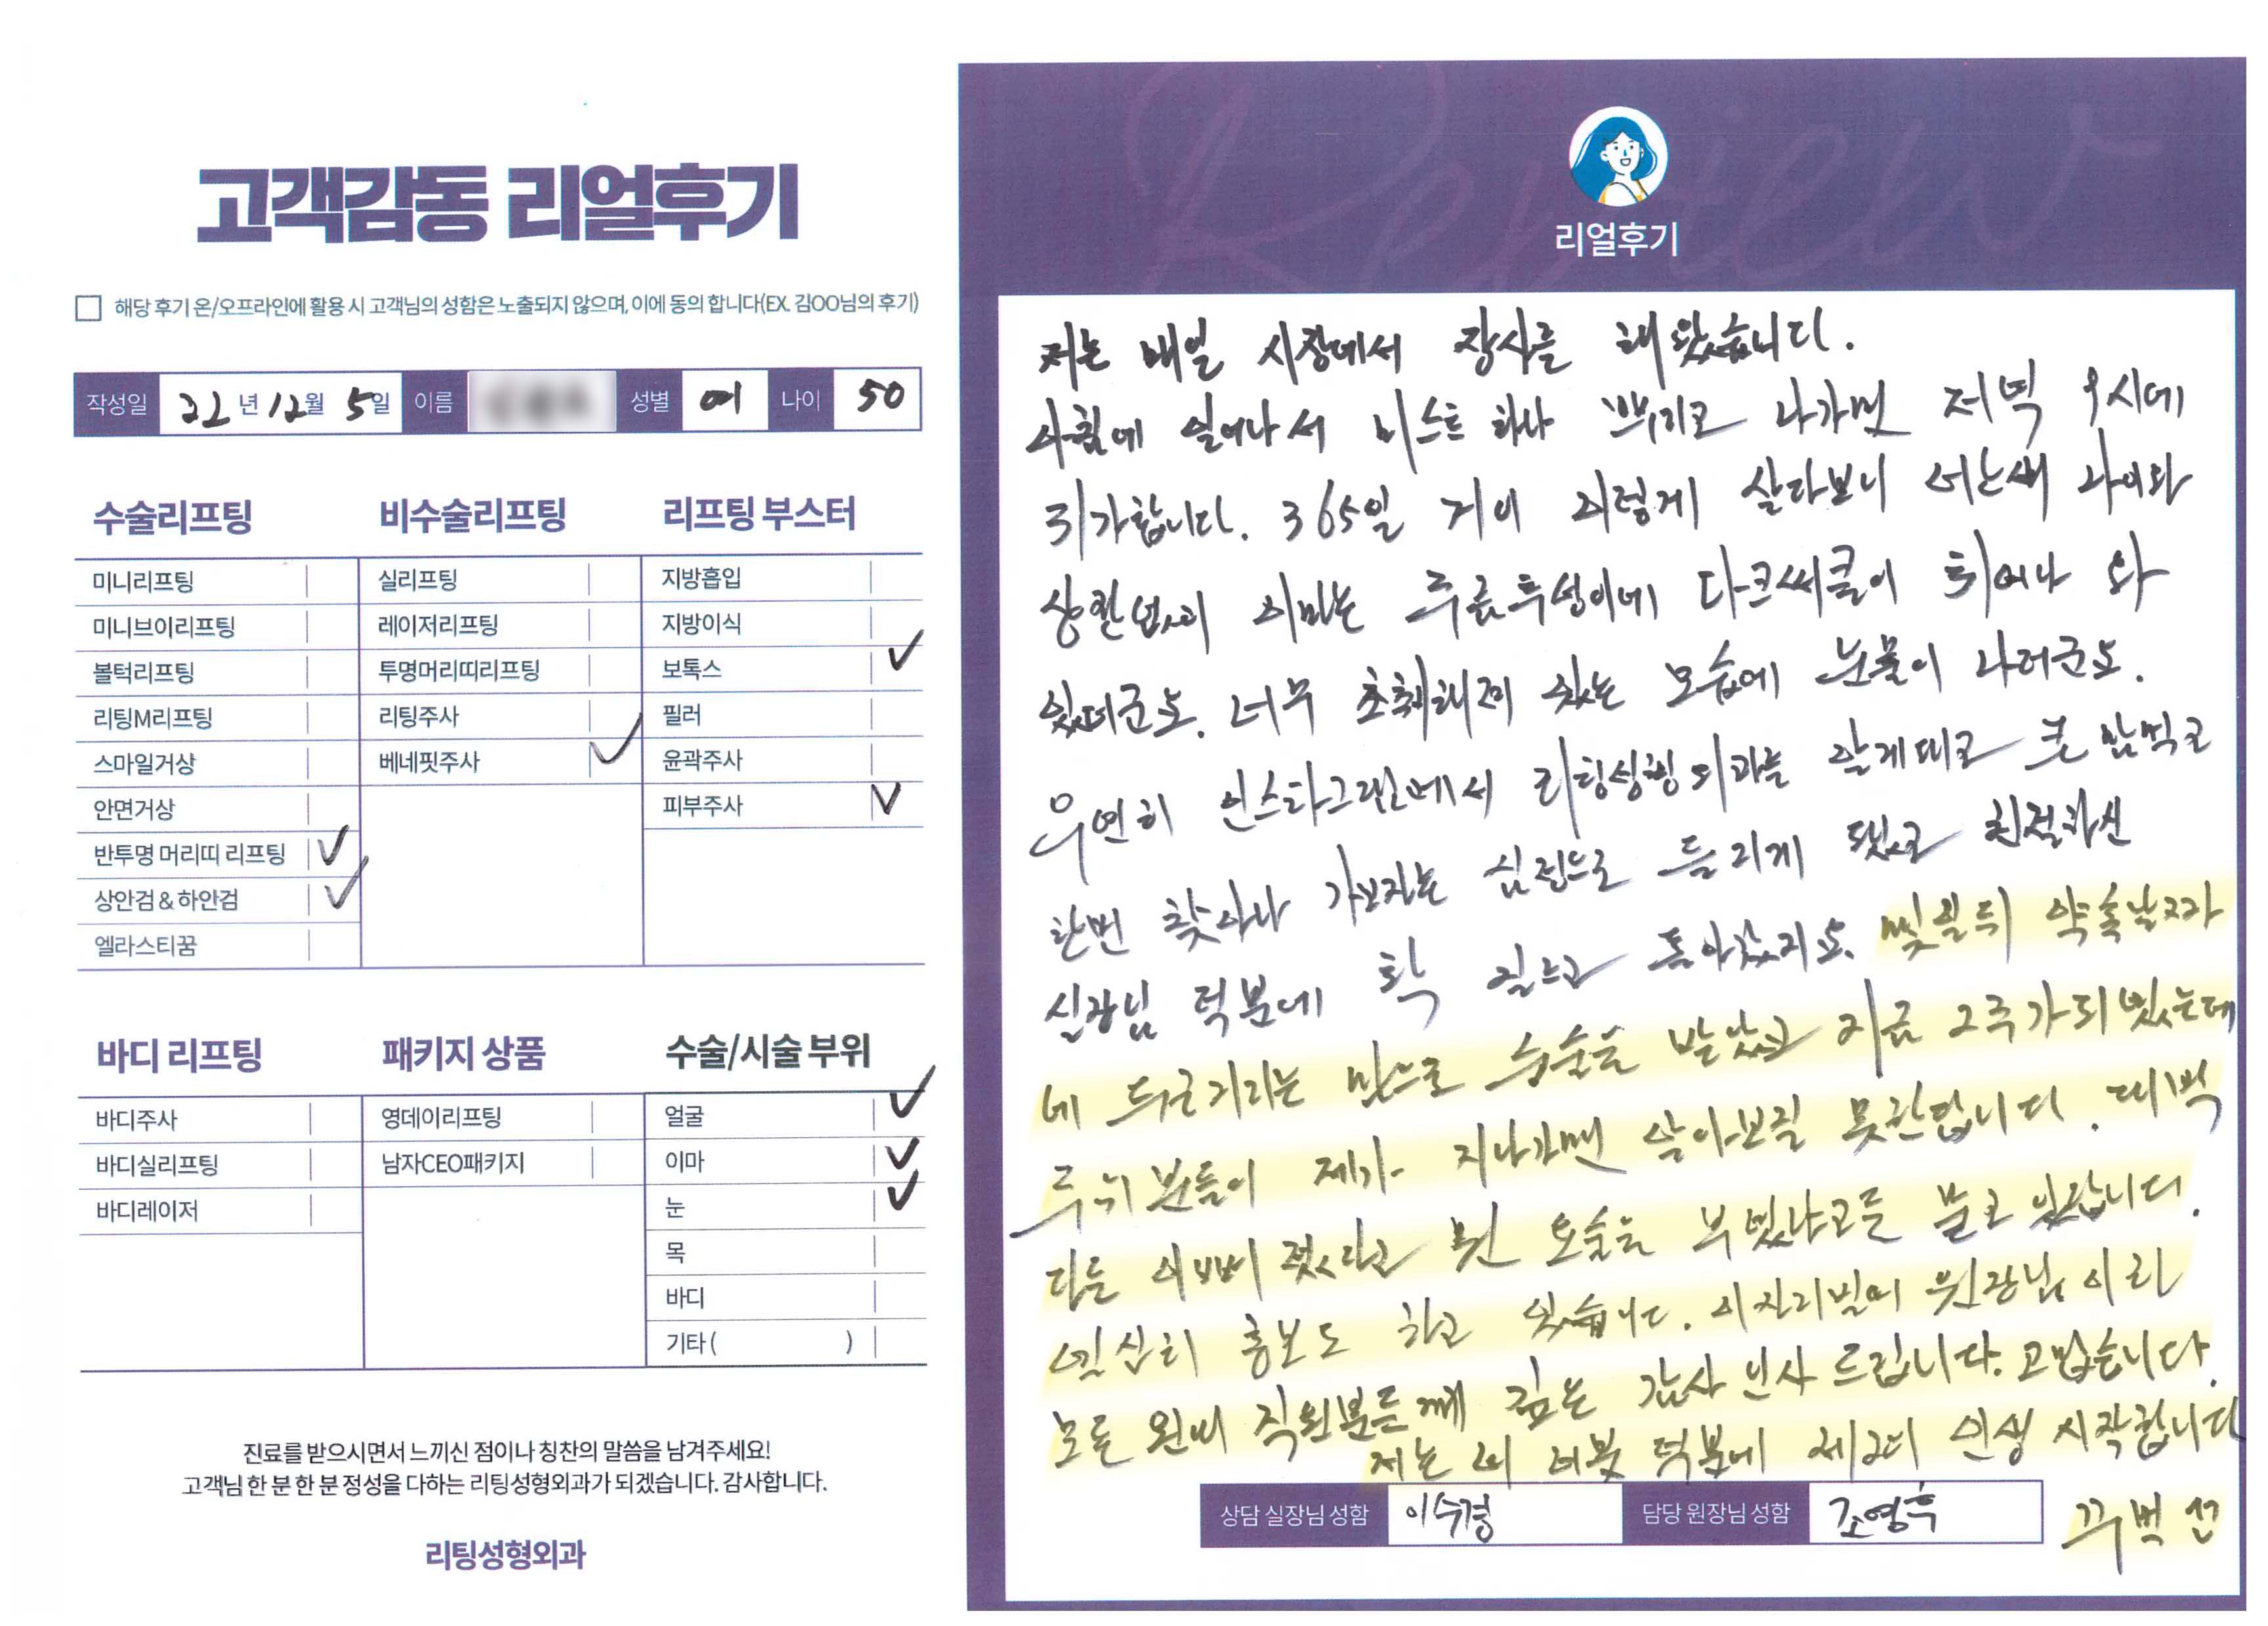 고객감동 리얼후기
해당 후기 온/오프라인에 활용 시 고객님의 성함은 노출되지 않으며, 이에 동의 합니다(EX. 김OO님의 후기)
작성일 22년 12월 5일 이름 성별 여 나이 50
수술리프팅
미니리프팅
미니브이리프팅
볼턱리프팅
리팅M리프팅
스마일거상
안면거상
반투명 머리띠 리프팅
상안검&하안검
엘라스티꿈
비수술리프팅
실리프팅
레이저리프팅
투명머리띠리프팅
리팅주사
베네핏주사
리프팅 부스터
지방흡입
지방이식
보톡스
필러
윤곽주사
피부주사
바디 리프팅
바디주사
바디실리프팅
바디레이저
패키지 상품
영데이리프팅
남자CEO패키지
수술/시술 부위
얼굴
이마
눈
목
바디
기타( )
진료를 받으시면서 느끼신 점이나 칭찬의 말씀을 남겨주세요!
고객님 한 분 한 분 정성을 다하는 리팅성형외과가 되겠습니다. 감사합니다.
리팅성형외과
Review
리얼후기
저는 매일 시장에서 장사를 해 왔습니다.
아침에 일어나서 미스트 하나 뿌리고 나가면 저녁 9시에
귀가합니다. 365일 거의 이렇게 살다보니 어느새 나이와
상관없이 이마는 주름투성이에 다크써클이 튀어나 와
있더군요. 너무 초췌해져 있는 모습에 눈물이 나더군요.
우연히 인스타그램에서 리팅성형외과를 알게되고 큰 맘먹고
한번 찾아나 가보자는 심정으로 들리게 됐고 친절하신
실장님 덕분에 확 믿고 돌아갔지요. 몇일뒤 약속날짜
에 두근거리는 맘으로 수술을 받았고 지금 2주가되었는데
주위분들이 제가 지나가면 알아보질 못한답니다. 대박
다들 이뻐졌다고 뭔 요술을 부렸냐고들 묻고 있답니다.
열심히 홍보도 하고 있습니다. 이자리빌어 원장님 이하
모든 직원분들께 깊은 감사 인사 드립니다. 고맙습니다.
저는 이 덕분에 제2의 인생 시작합니다
꾸벅
상담 실장님 성함 이수경 담당 원장님 성함 조영후